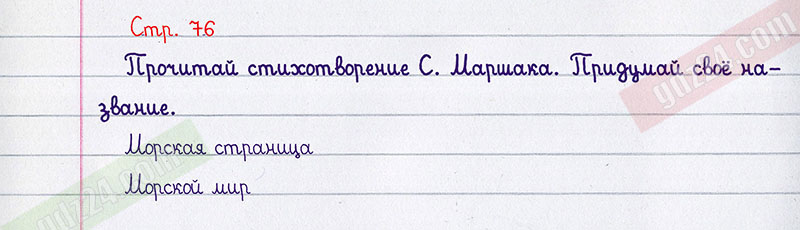 Стр. 76
Прочитай стихотворение С. Маршака. Придумай своё на-
звание.
Морская страница
Морской мир
gdz24.com
gdz24.com